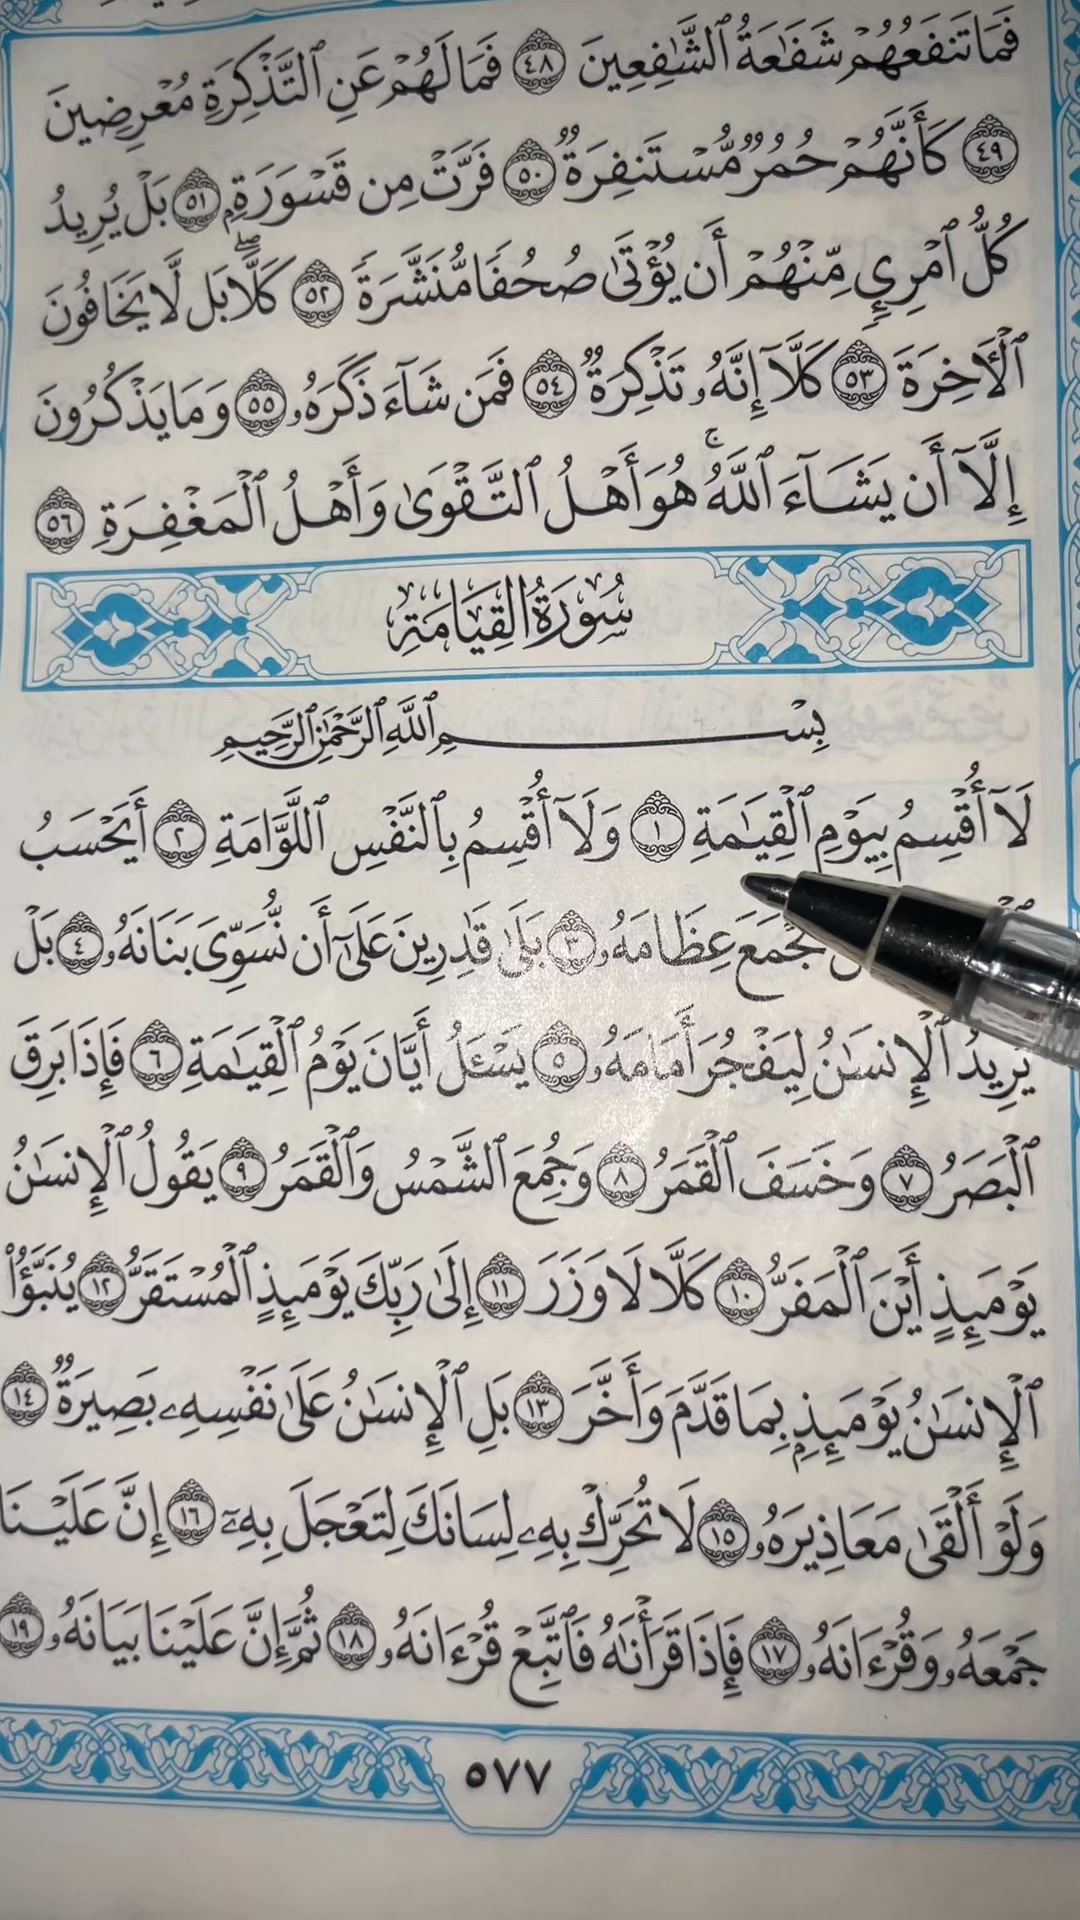 فَمَا تَنفَعُهُمْ شَفَٰعَةُ ٱلشَّٰفِعِينَ ٤٨ فَمَا لَهُمْ عَنِ ٱلتَّذْكِرَةِ مُعْرِضِينَ
٤٩ كَأَنَّهُمْ حُمُرٌ مُّسْتَنفِرَةٌ ٥٠ فَرَّتْ مِن قَسْوَرَةِۭ ٥١ بَلْ يُرِيدُ
كُلُّ ٱمْرِئٍ مِّنْهُمْ أَن يُؤْتَىٰ صُحُفًا مُّنَشَّرَةً ٥٢ كَلَّا ۖ بَل لَّا يَخَافُونَ
ٱلْءَاخِرَةَ ٥٣ كَلَّآ إِنَّهُۥ تَذْكِرَةٌ ٥٤ فَمَن شَآءَ ذَكَرَهُۥ ٥٥ وَمَا يَذْكُرُونَ
إِلَّآ أَن يَشَآءَ ٱللَّهُ ۚ هُوَ أَهْلُ ٱلتَّقْوَىٰ وَأَهْلُ ٱلْمَغْفِرَةِ ٥٦
سُورَةُ القِيَامَةِ
بِسْمِ ٱللَّهِ ٱلرَّحْمَٰنِ ٱلرَّحِيمِ
لَآ أُقْسِمُ بِيَوْمِ ٱلْقِيَٰمَةِ ١ وَلَآ أُقْسِمُ بِٱلنَّفْسِ ٱللَّوَّامَةِ ٢ أَيَحْسَبُ
نَّجْمَعَ عِظَامَهُۥ ٣ بَلَىٰ قَٰدِرِينَ عَلَىٰٓ أَن نُّسَوِّىَ بَنَانَهُۥ ٤ بَلْ
يُرِيدُ ٱلْإِنسَٰنُ لِيَفْجُرَ أَمَامَهُۥ ٥ يَسْـَٔلُ أَيَّانَ يَوْمُ ٱلْقِيَٰمَةِ ٦ فَإِذَا بَرِقَ
ٱلْبَصَرُ ٧ وَخَسَفَ ٱلْقَمَرُ ٨ وَجُمِعَ ٱلشَّمْسُ وَٱلْقَمَرُ ٩ يَقُولُ ٱلْإِنسَٰنُ
يَوْمَئِذٍ أَيْنَ ٱلْمَفَرُّ ١٠ كَلَّا لَا وَزَرَ ١١ إِلَىٰ رَبِّكَ يَوْمَئِذٍ ٱلْمُسْتَقَرُّ ١٢ يُنَبَّؤُا۟
ٱلْإِنسَٰنُ يَوْمَئِذِۭ بِمَا قَدَّمَ وَأَخَّرَ ١٣ بَلِ ٱلْإِنسَٰنُ عَلَىٰ نَفْسِهِۦ بَصِيرَةٌ ١٤
وَلَوْ أَلْقَىٰ مَعَاذِيرَهُۥ ١٥ لَا تُحَرِّكْ بِهِۦ لِسَانَكَ لِتَعْجَلَ بِهِۦٓ ١٦ إِنَّ عَلَيْنَا
جَمْعَهُۥ وَقُرْءَانَهُۥ ١٧ فَإِذَا قَرَأْنَٰهُ فَٱتَّبِعْ قُرْءَانَهُۥ ١٨ ثُمَّ إِنَّ عَلَيْنَا بَيَانَهُۥ ١٩
٥٧٧